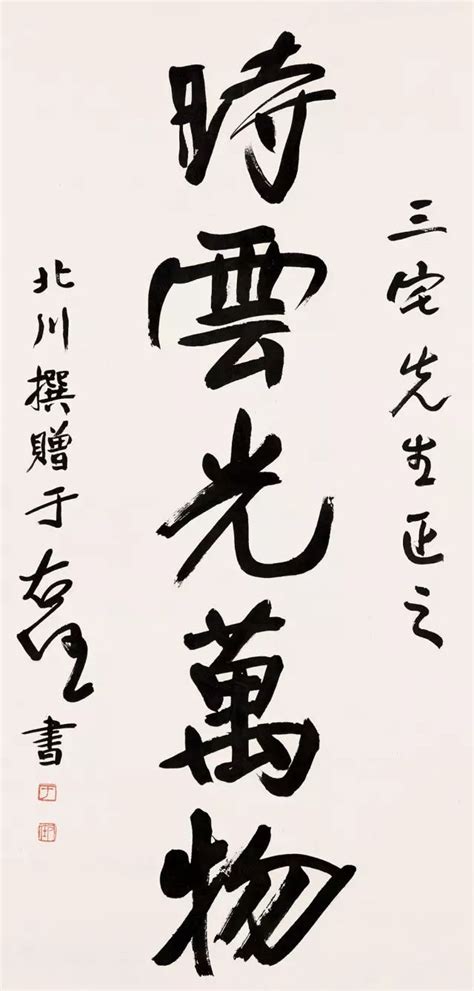 三宅先生正之
時雲光萬物
北川撰贈于右任書